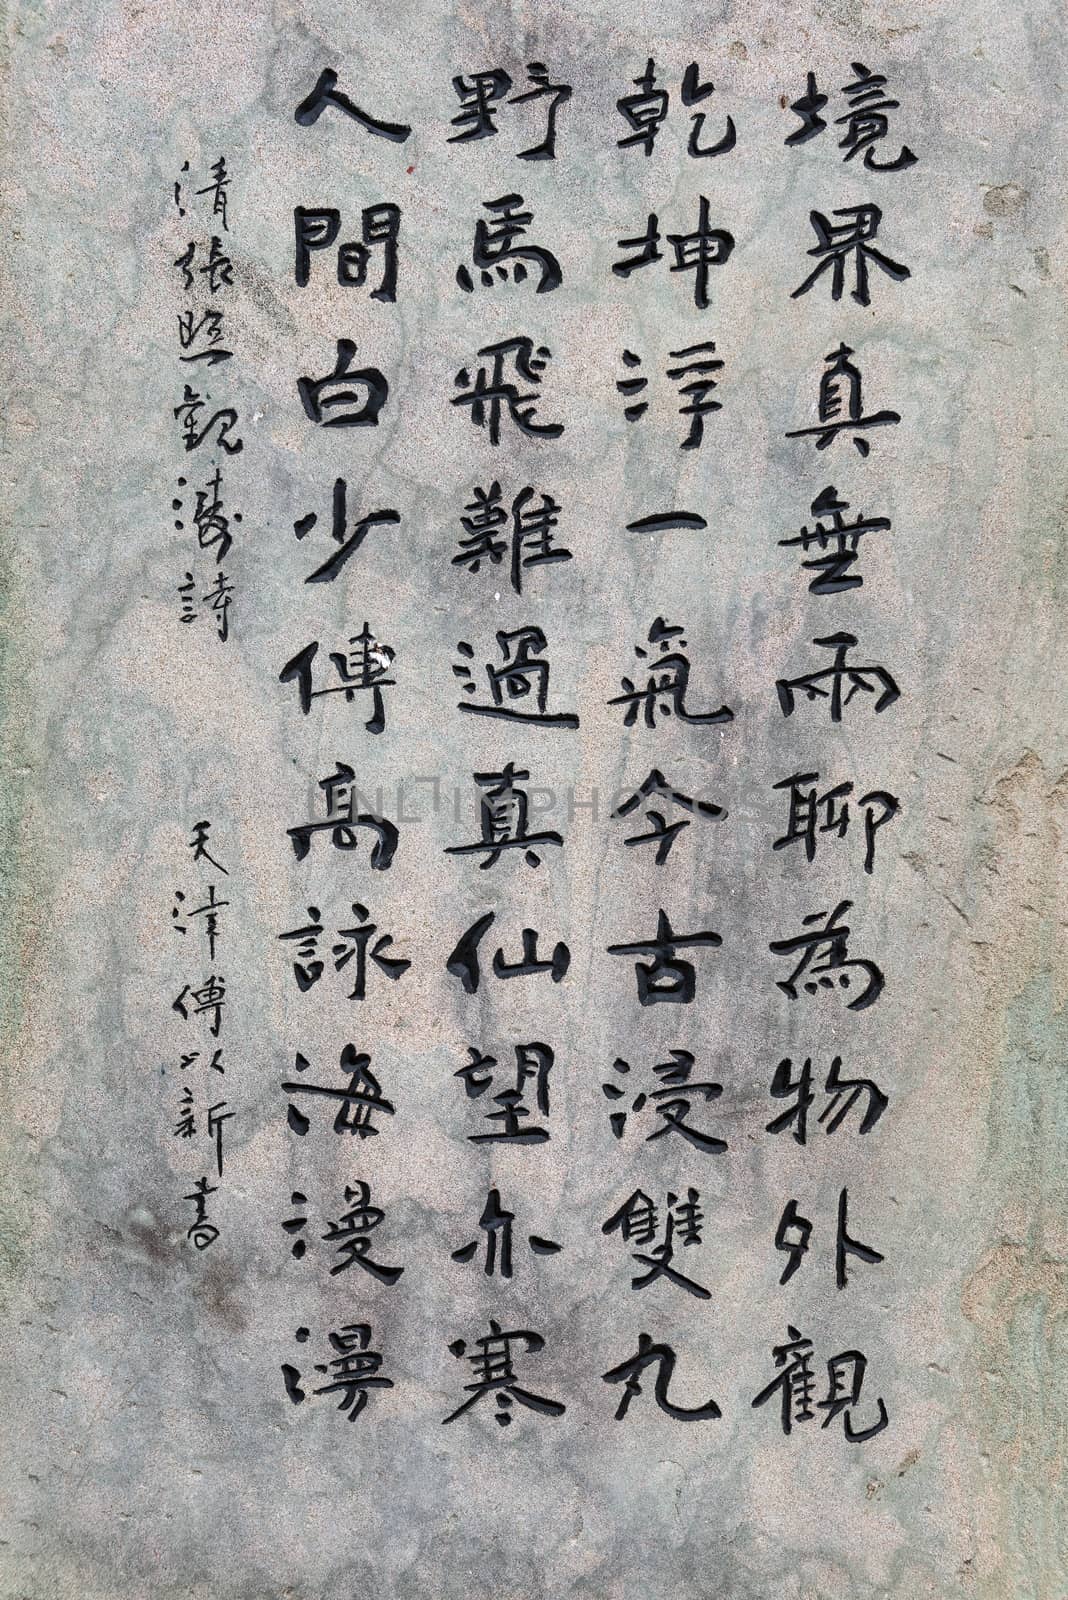 境界真無兩聊為物外觀
乾坤浮一氣今古浸雙丸
野馬飛難過真仙望亦寒
人間白少傅高詠海漫漫
清張照觀濤詩 天津傅以新書
UNLIMPHOTOS